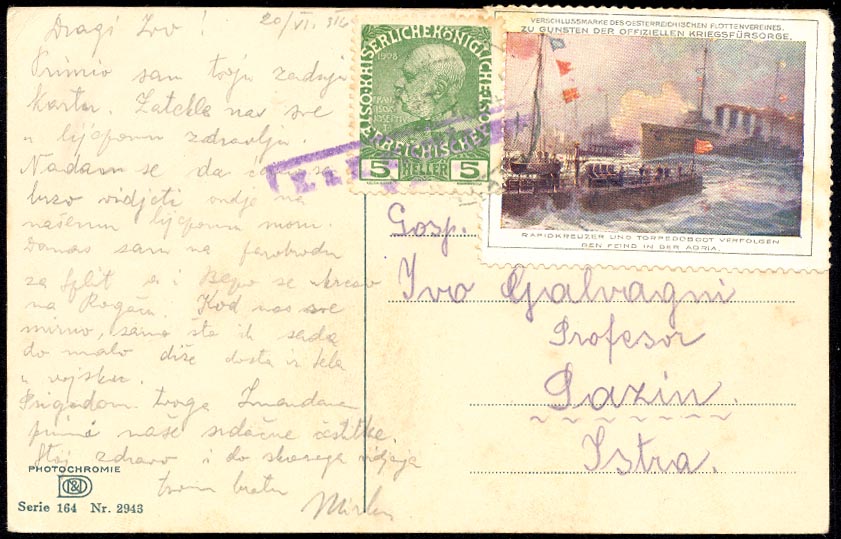 Dragi Ivo! 20/VI. 916
Primio sam tvoju zadnju
kartu. Zatekla nas sve
u lijepom zdravlju.
Nadam se da
brzo vidjeti ovdje na
našemu lijepom moru.
Danas sam na parobrodu
za Split a i Bepo se
na Rogaču. Kod nas sve
mirno, samo šta ih sada
do malo diže dosta iz sela
u vojsku.
Prigodom tvoga Imendana
primi naše srdačne čestitke.
Stoj zdravo i do skorega vidjenja
tvom bratu
Mirko
PHOTOCHROMIE
Serie 164 Nr. 2943
KAISERLICHEKÖNIGLICHE
1908
1916
FRANZ
JOSEF I
ÖSTERREICHISCHE POST
5 HELLER 5
VERSCHLUSSMARKE DES OESTERREICHISCHEN FLOTTENVEREINES.
ZU GUNSTEN DER OFFIZIELLEN KRIEGSFÜRSORGE.
RAPIDKREUZER UND TORPEDOBOOT VERFOLGEN
DEN FEIND IN DER ADRIA.
Gosp.
Ivo Gjalvagni
Profesor
Pazin
Istra.